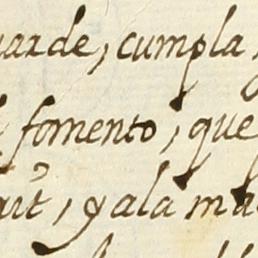 uarde, cumpla
fomento, que
y ala ma